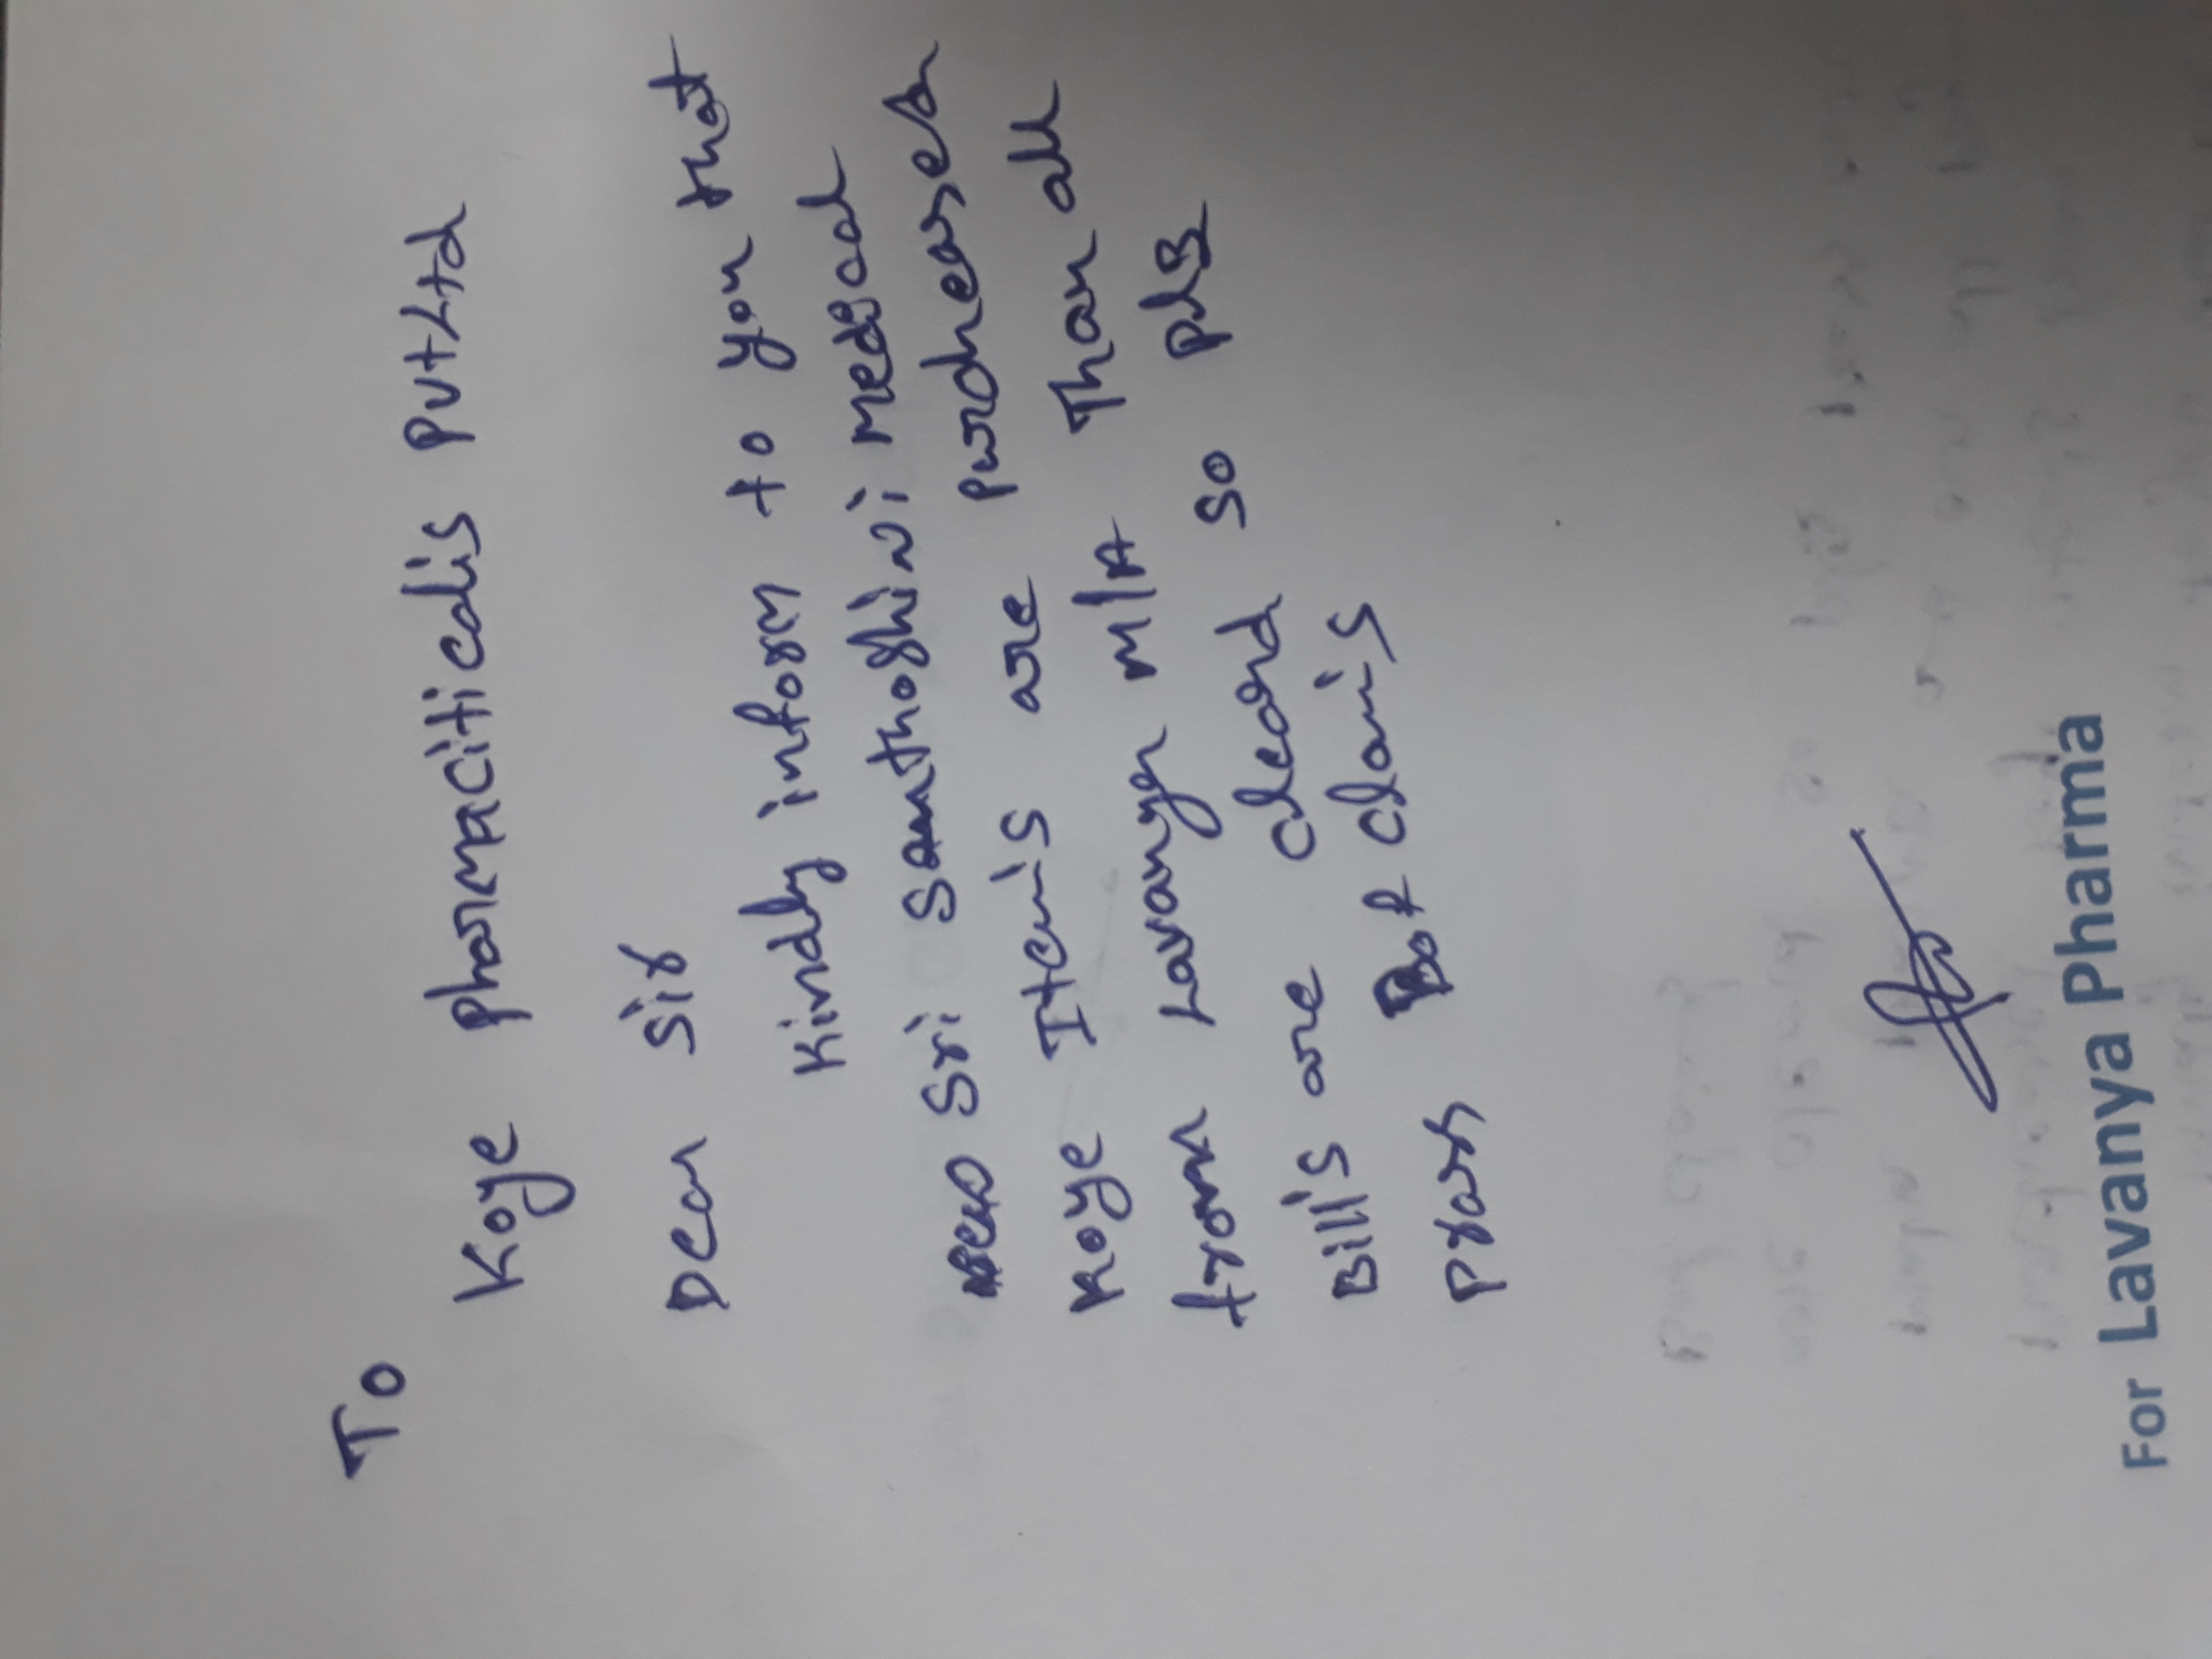 To
Koye pharmaciticalis Pvt Ltd
Dear Sir
Kindly inform to you that
Sri Santhoshini medical
Koye Itemis are purcheased
from Lavanya m/A Than all
Billis are cleard so pls
Pross clamis
For Lavanya Pharma